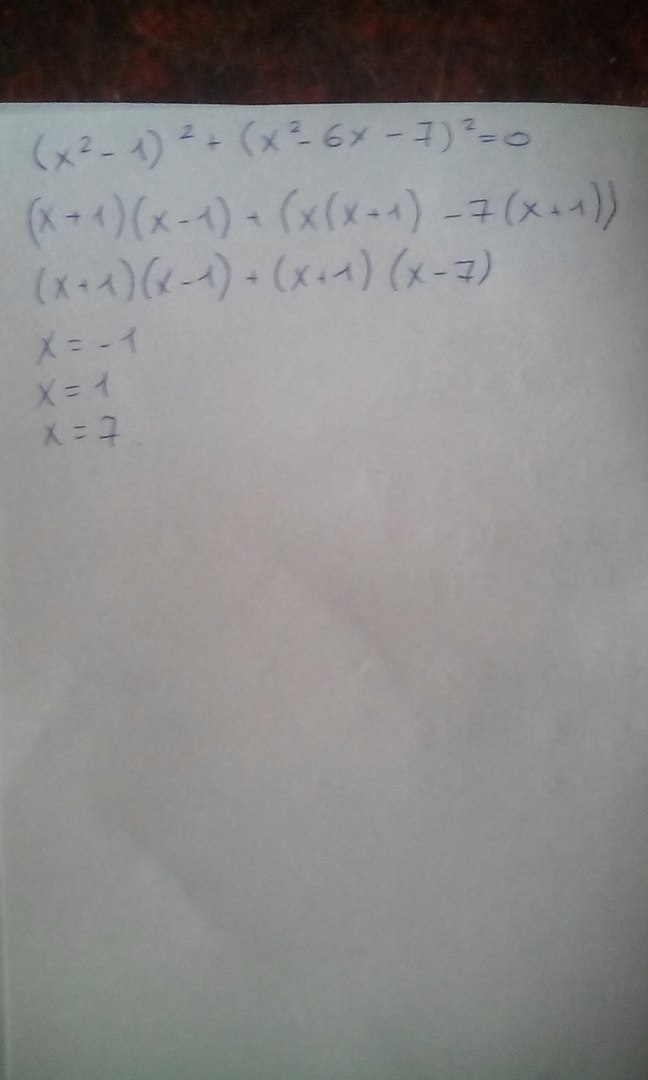 (x² - 1)² + (x² - 6x - 7)² = 0
(x + 1)(x - 1) + (x(x + 1) - 7(x + 1))
(x + 1)(x - 1) + (x + 1)(x - 7)
x = -1
x = 1
x = 7